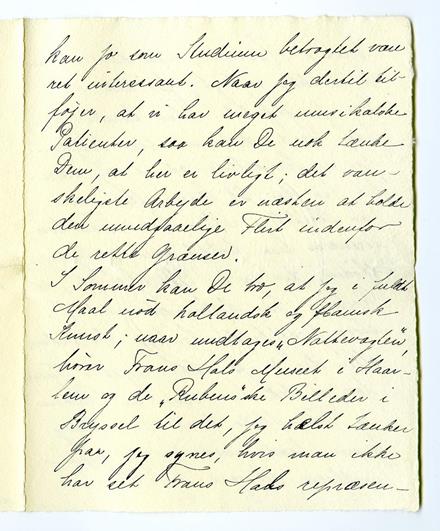 kan jo som Studium betragtet være
ret interessant. Naar jeg dertil til-
føjer, at vi har meget musikalske
Patienter, saa kan De nok tænke
Dem, at her er livligt; det van-
skeligste Arbejde er næsten at holde
den uundgaaelige Flirt indenfor
de rette Grænser.
I Sommer kan De tro, at jeg i fuldt
Maal nød hollandsk og flamsk
Kunst; naar undtages "Nattevagten",
hører Frans Hals Museet i Haar-
lem og de "Rubens'ske Billeder i
Bryssel til det, jeg helst tænker
paa, jeg synes, hvis man ikke
har set Frans Hals repræsen-